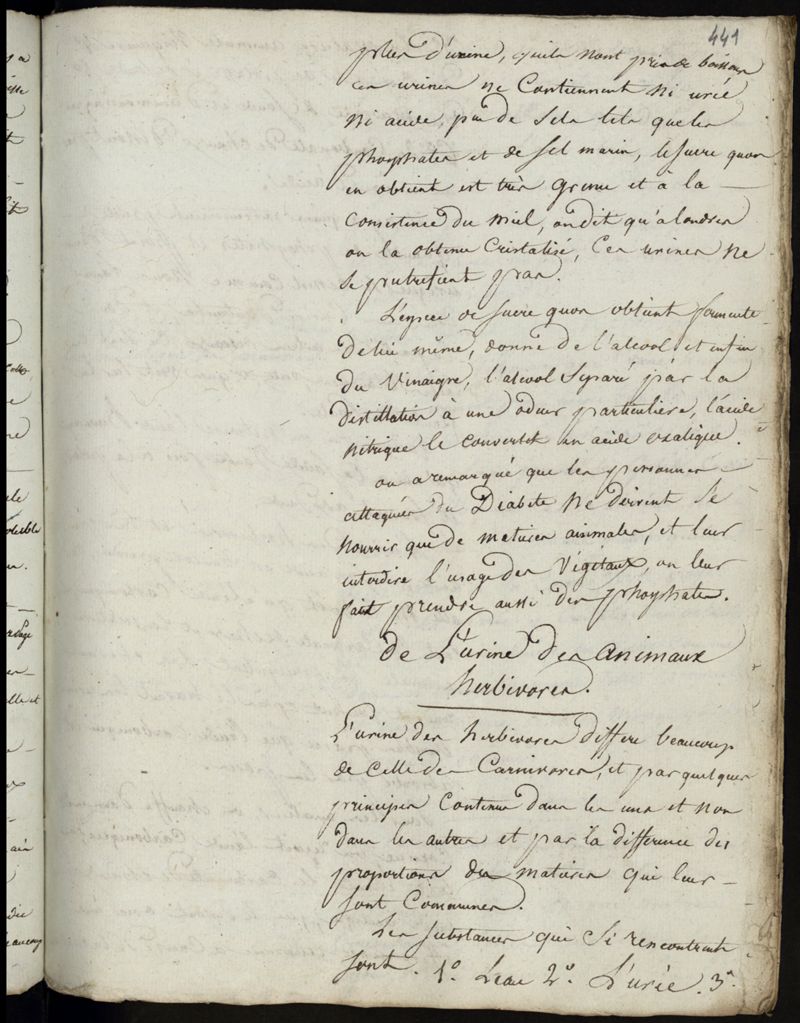 441
plus d'urine, qu'ils n'ont pris de boisson
ces urines ne Contiennent ni urée
ni acide, peu de sels tels que les
phosphates et de sel marin, le sucre quon
en obtient est très grenu et à la
Consistence du miel, on dit qu'a londres
on la obtenu Cristalisé, Ces urines ne
se putrefient pas.
L'espece de sucre quon obtient fermente
de lui même, donne de l'alcool et enfin
du Vinaigre, l'alcool séparé par la
distillation à une odeur particuliere, l'acide
nitrique le convertit en acide oxalique.
on a remarqué que les personnes
attaquées du Diabete ne doivent se
nourrir que de matieres animales, et leur
interdire l'usage des Végétaux, on leur
fait prendre aussi des phosphates.
de L'urine des animaux
herbivores.
L'urine des herbivores differe beaucoup
de celle des Carnivores, et par quelques
principes Contenus dans les uns et non
dans les autres et par la difference des
proportions des matieres qui leur
sont Communes.
Les substances qui s'i rencontrent
sont. 1° L'eau 2° L'urée. 3°